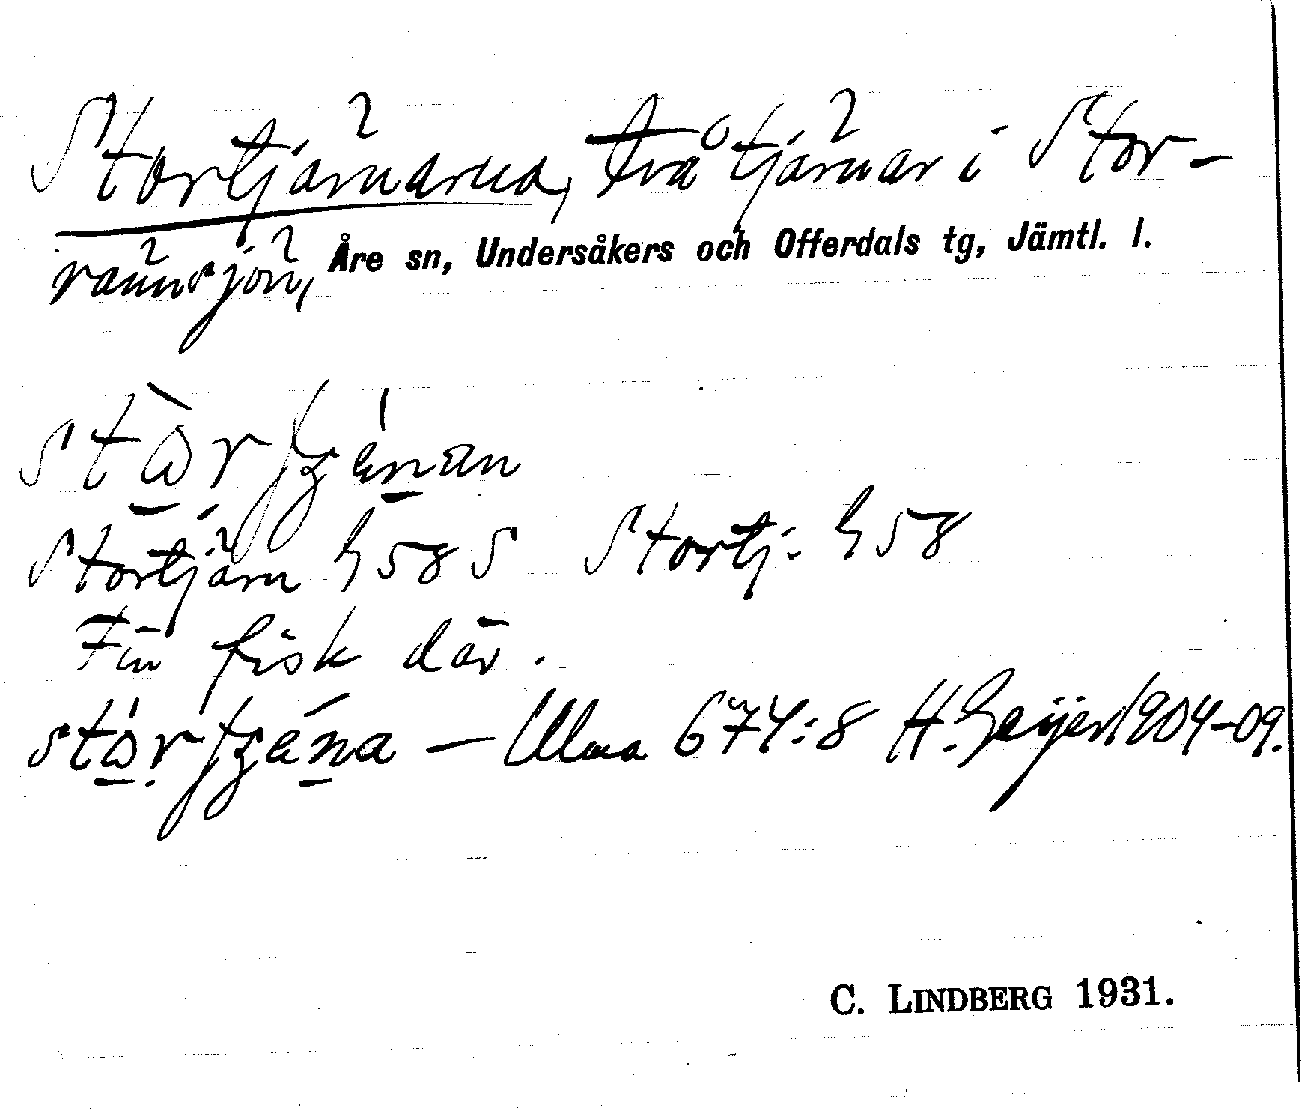 Stortjärnarna, två tjärnar i Stor-
rännsjön, Åre sn, Undersåkers och Offerdals tg, Jämtl. l.
Stortjärn h 58 S Stortj. h 58
Fin fisk där.
– Ulma 674:8 H. Geijer 1904-09.
C. LINDBERG 1931.